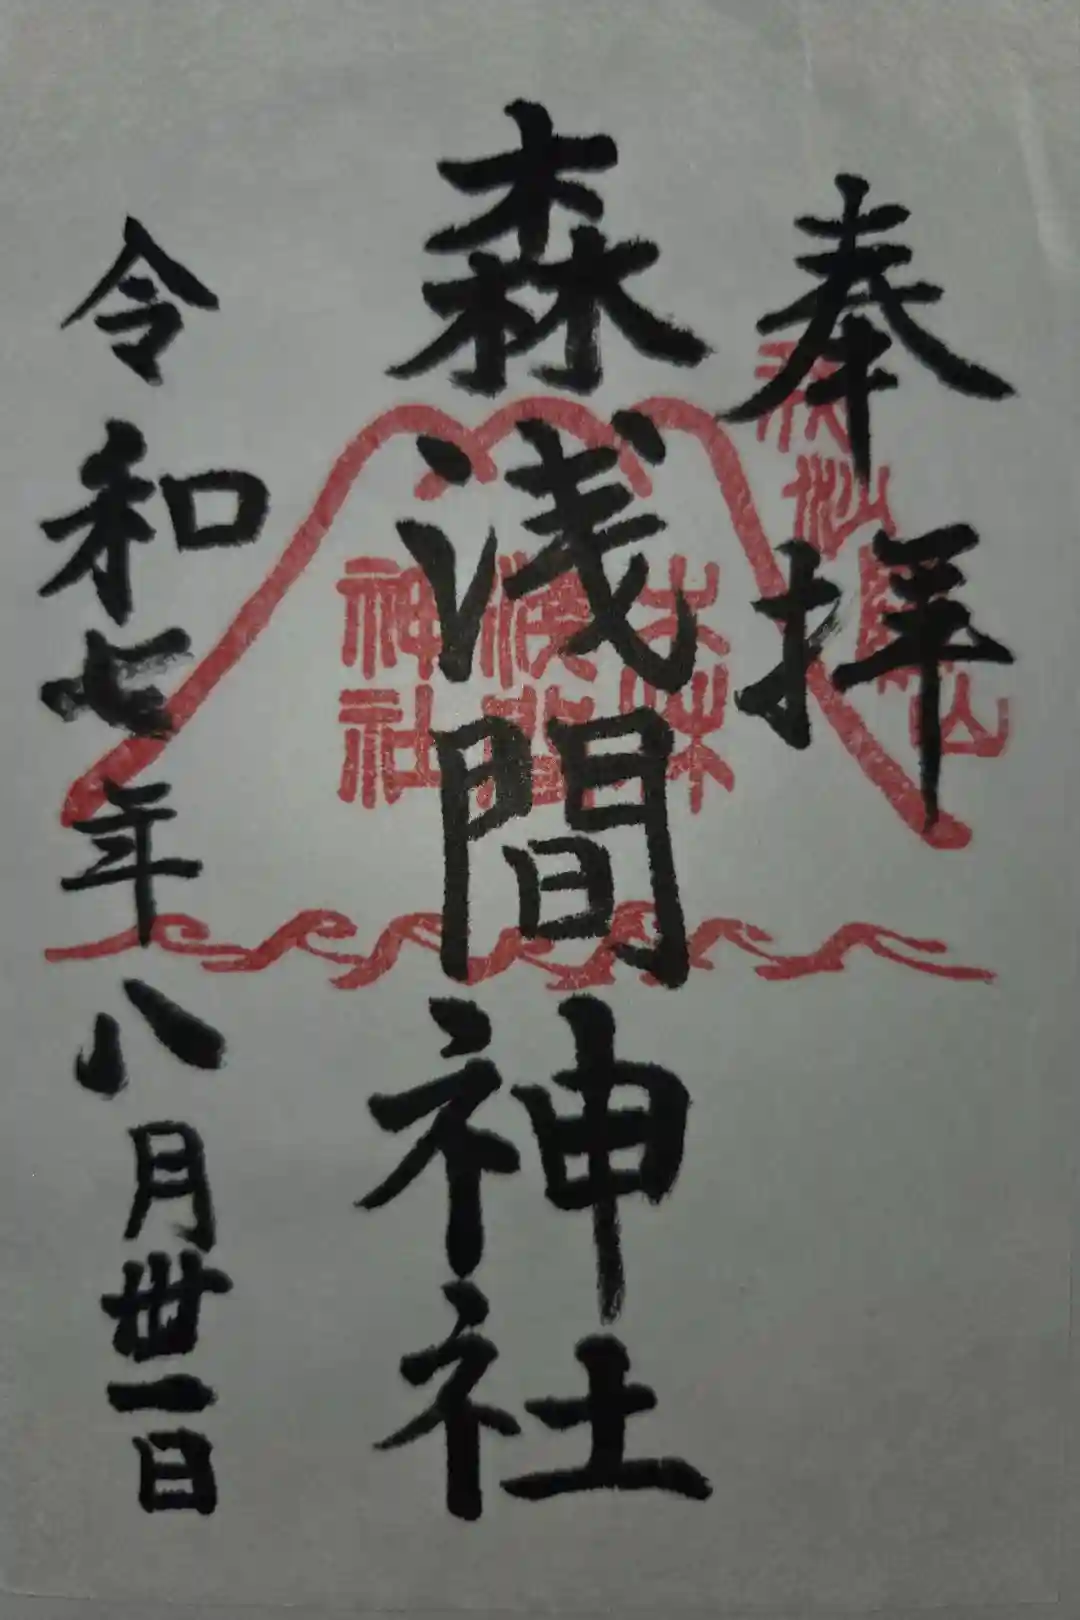 奉拝
森浅間神社
令和七年八月丗一日
神社